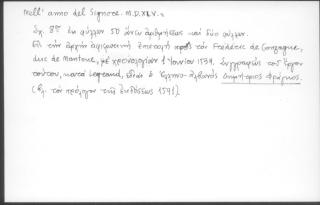 Nell' anno del Signore. M.D.XLV.
Σχ. 8°ν ἐκ φύλλων 50 ἄνευ ἀριθμήσεως καὶ δύο φύλλων.
Εἰς τὴν ἀρχὴν ἀφιερωτικὴ ἐπιστολὴ πρὸς τὸν Frédéric de Gonzague,
duc de Mantoue, μὲ χρονολογίαν 1 Ἰουνίου 1539. Συγγραφεὺς τοῦ ἔργου
τούτου, κατὰ Legrand, εἶναι ὁ Ἑλληνο-ἀλβανὸς Δημήτριος Φράγκος.
(Βλ. τὸν πρόλογον τῆς ἐκδόσεως 1541).